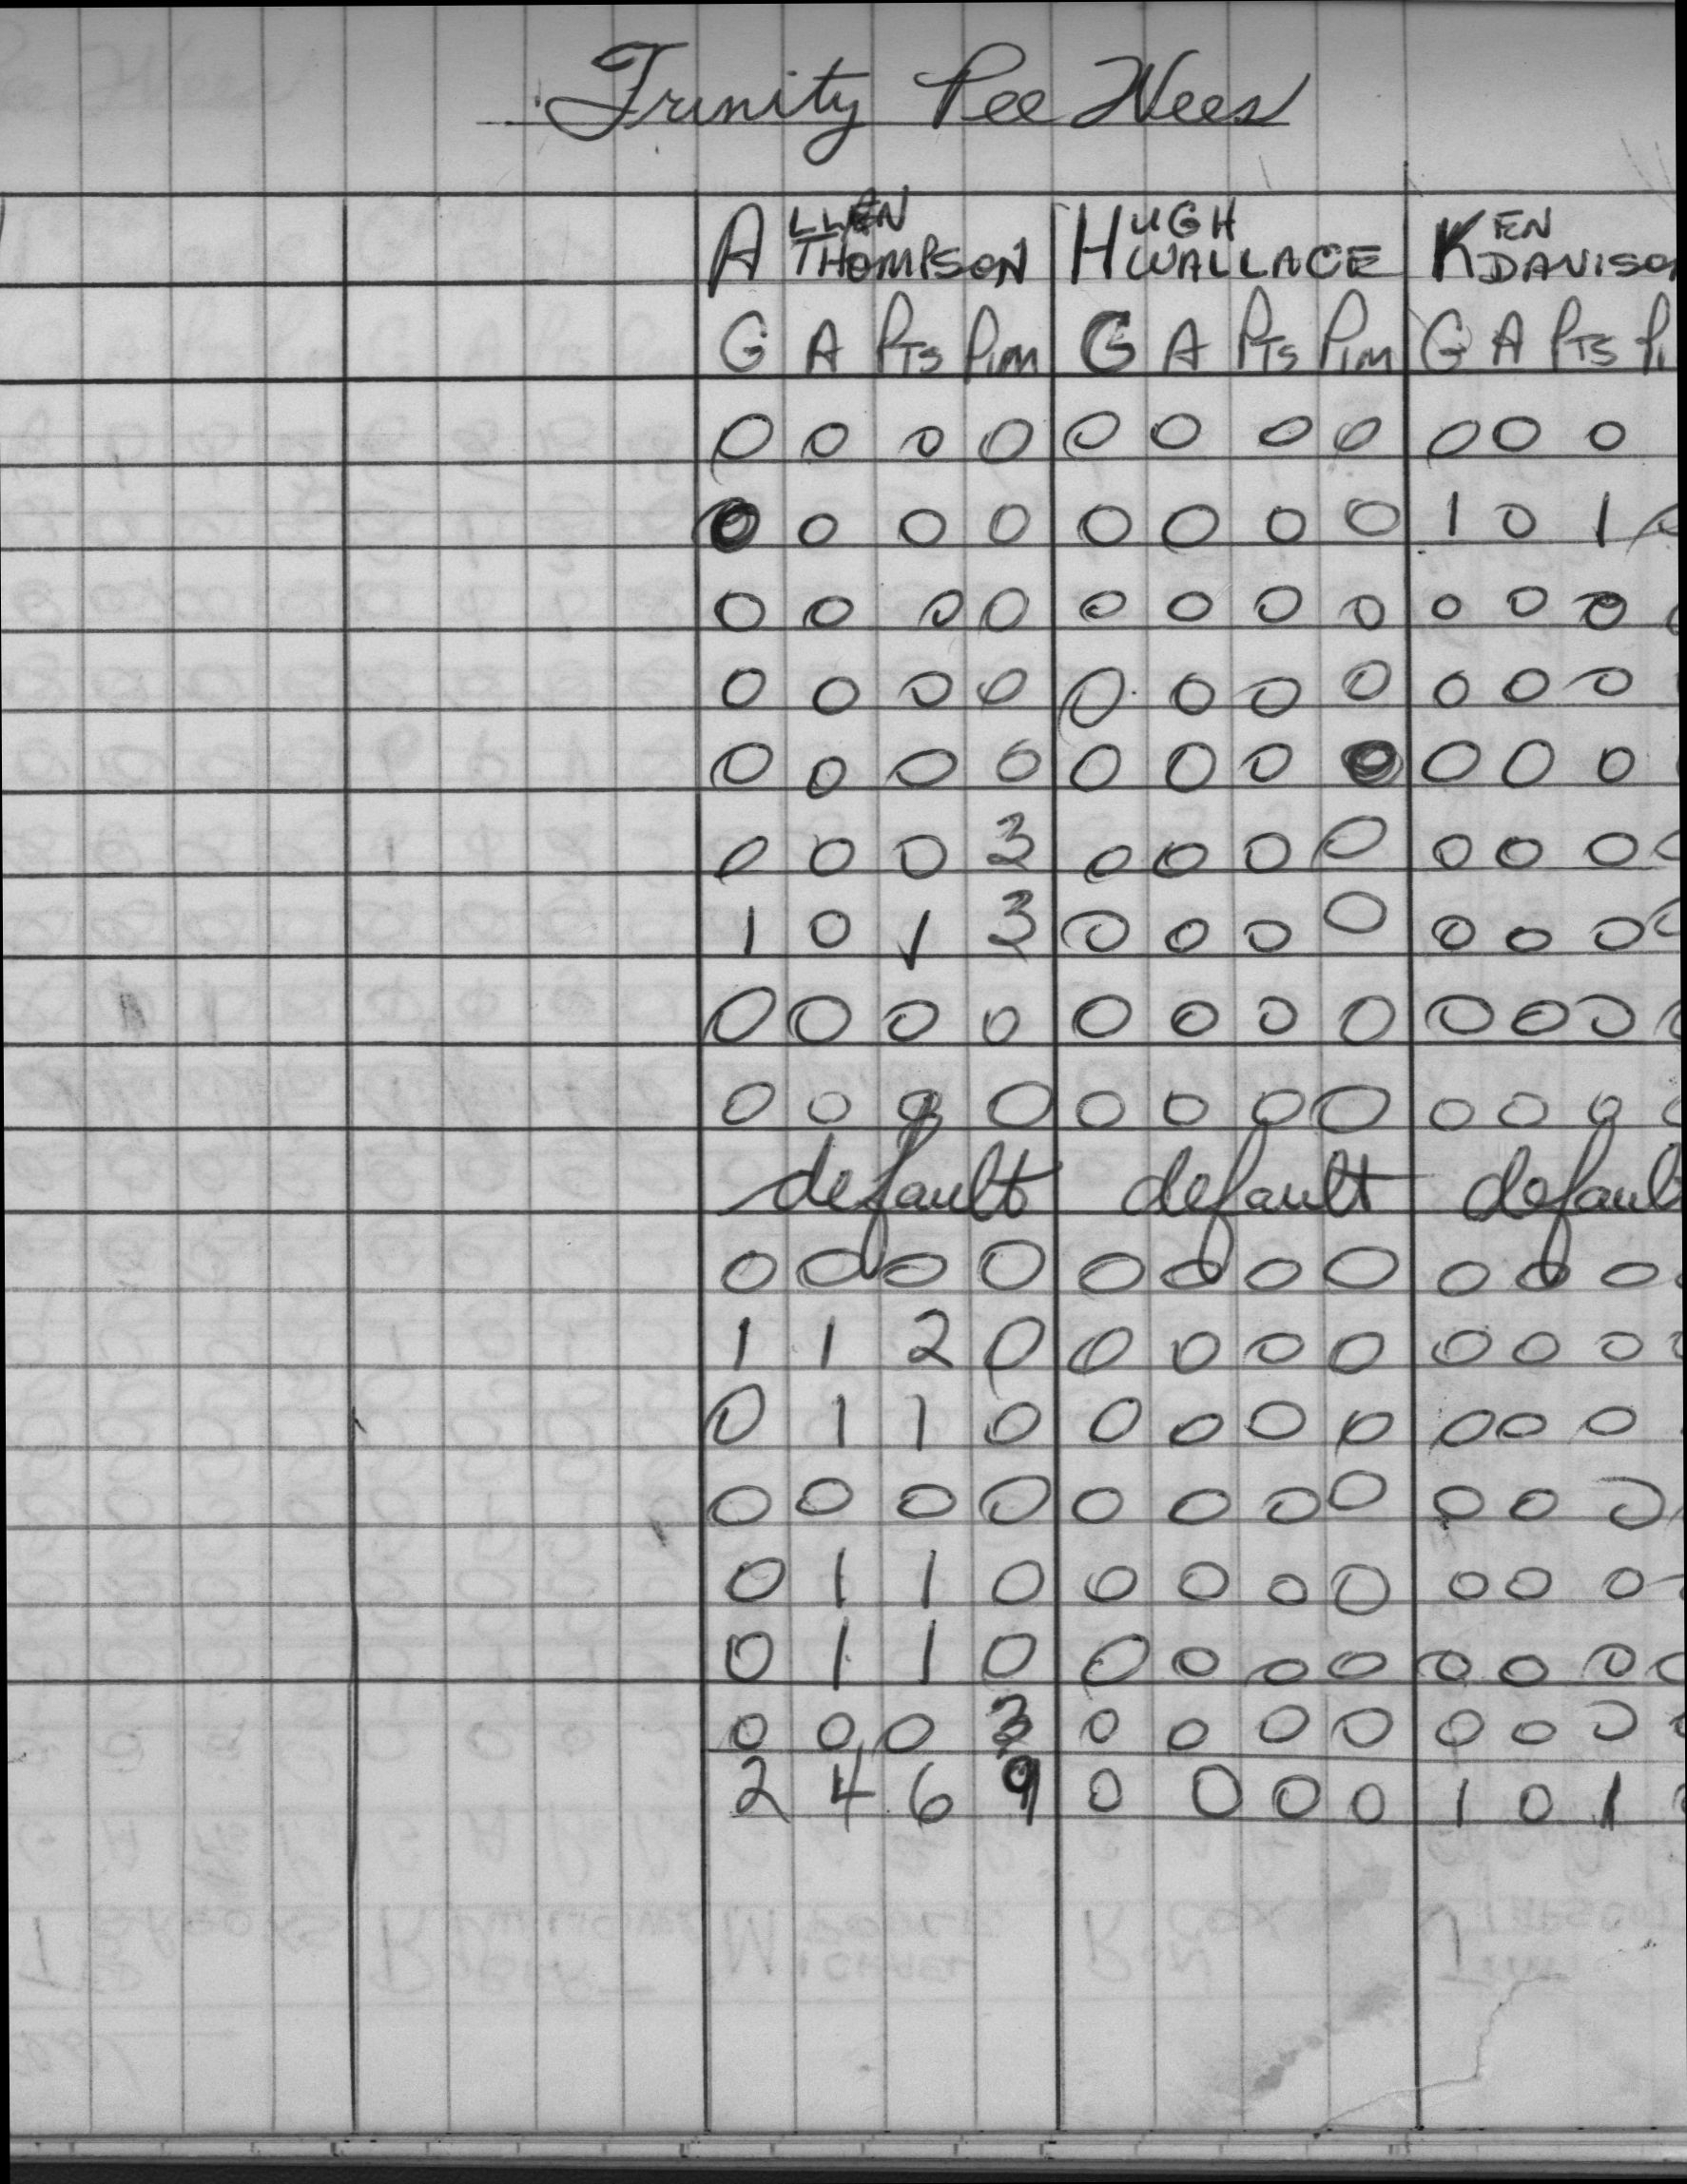 Trinity Pee Wees
ALLEN THOMPSON HUGH WALLACE KEN DAVISO
G A PTS PIM G A PTS PIM G A PTS PI
0 0 0 0 0 0 0 0 0 0 0
0 0 0 0 0 0 0 0 1 0 1 0
0 0 0 0 0 0 0 0 0 0 0 0
0 0 0 0 0 0 0 0 0 0 0
0 0 0 0 0 0 0 0 0 0 0
0 0 0 3 0 0 0 0 0 0 0 0
1 0 1 3 0 0 0 0 0 0 0 0
0 0 0 0 0 0 0 0 0 0 0 0
0 0 0 0 0 0 0 0 0 0 0 0
default default defaul
0 0 0 0 0 0 0 0 0 0 0
1 1 2 0 0 0 0 0 0 0 0 0
0 1 1 0 0 0 0 0 0 0 0
0 0 0 0 0 0 0 0 0 0 0
0 1 1 0 0 0 0 0 0 0 0
0 1 1 0 0 0 0 0 0 0 0 0
0 0 0 3 0 0 0 0 0 0 0 0
2 4 6 9 0 0 0 0 1 0 1 0